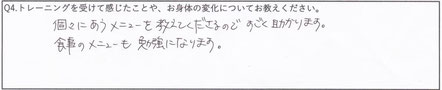 Q4.トレーニングを受けて感じたことや、お身体の変化についてお教えください。
個々にあうメニューを教えてくださるので すごく助かります。
食事のメニューも 勉強になります。